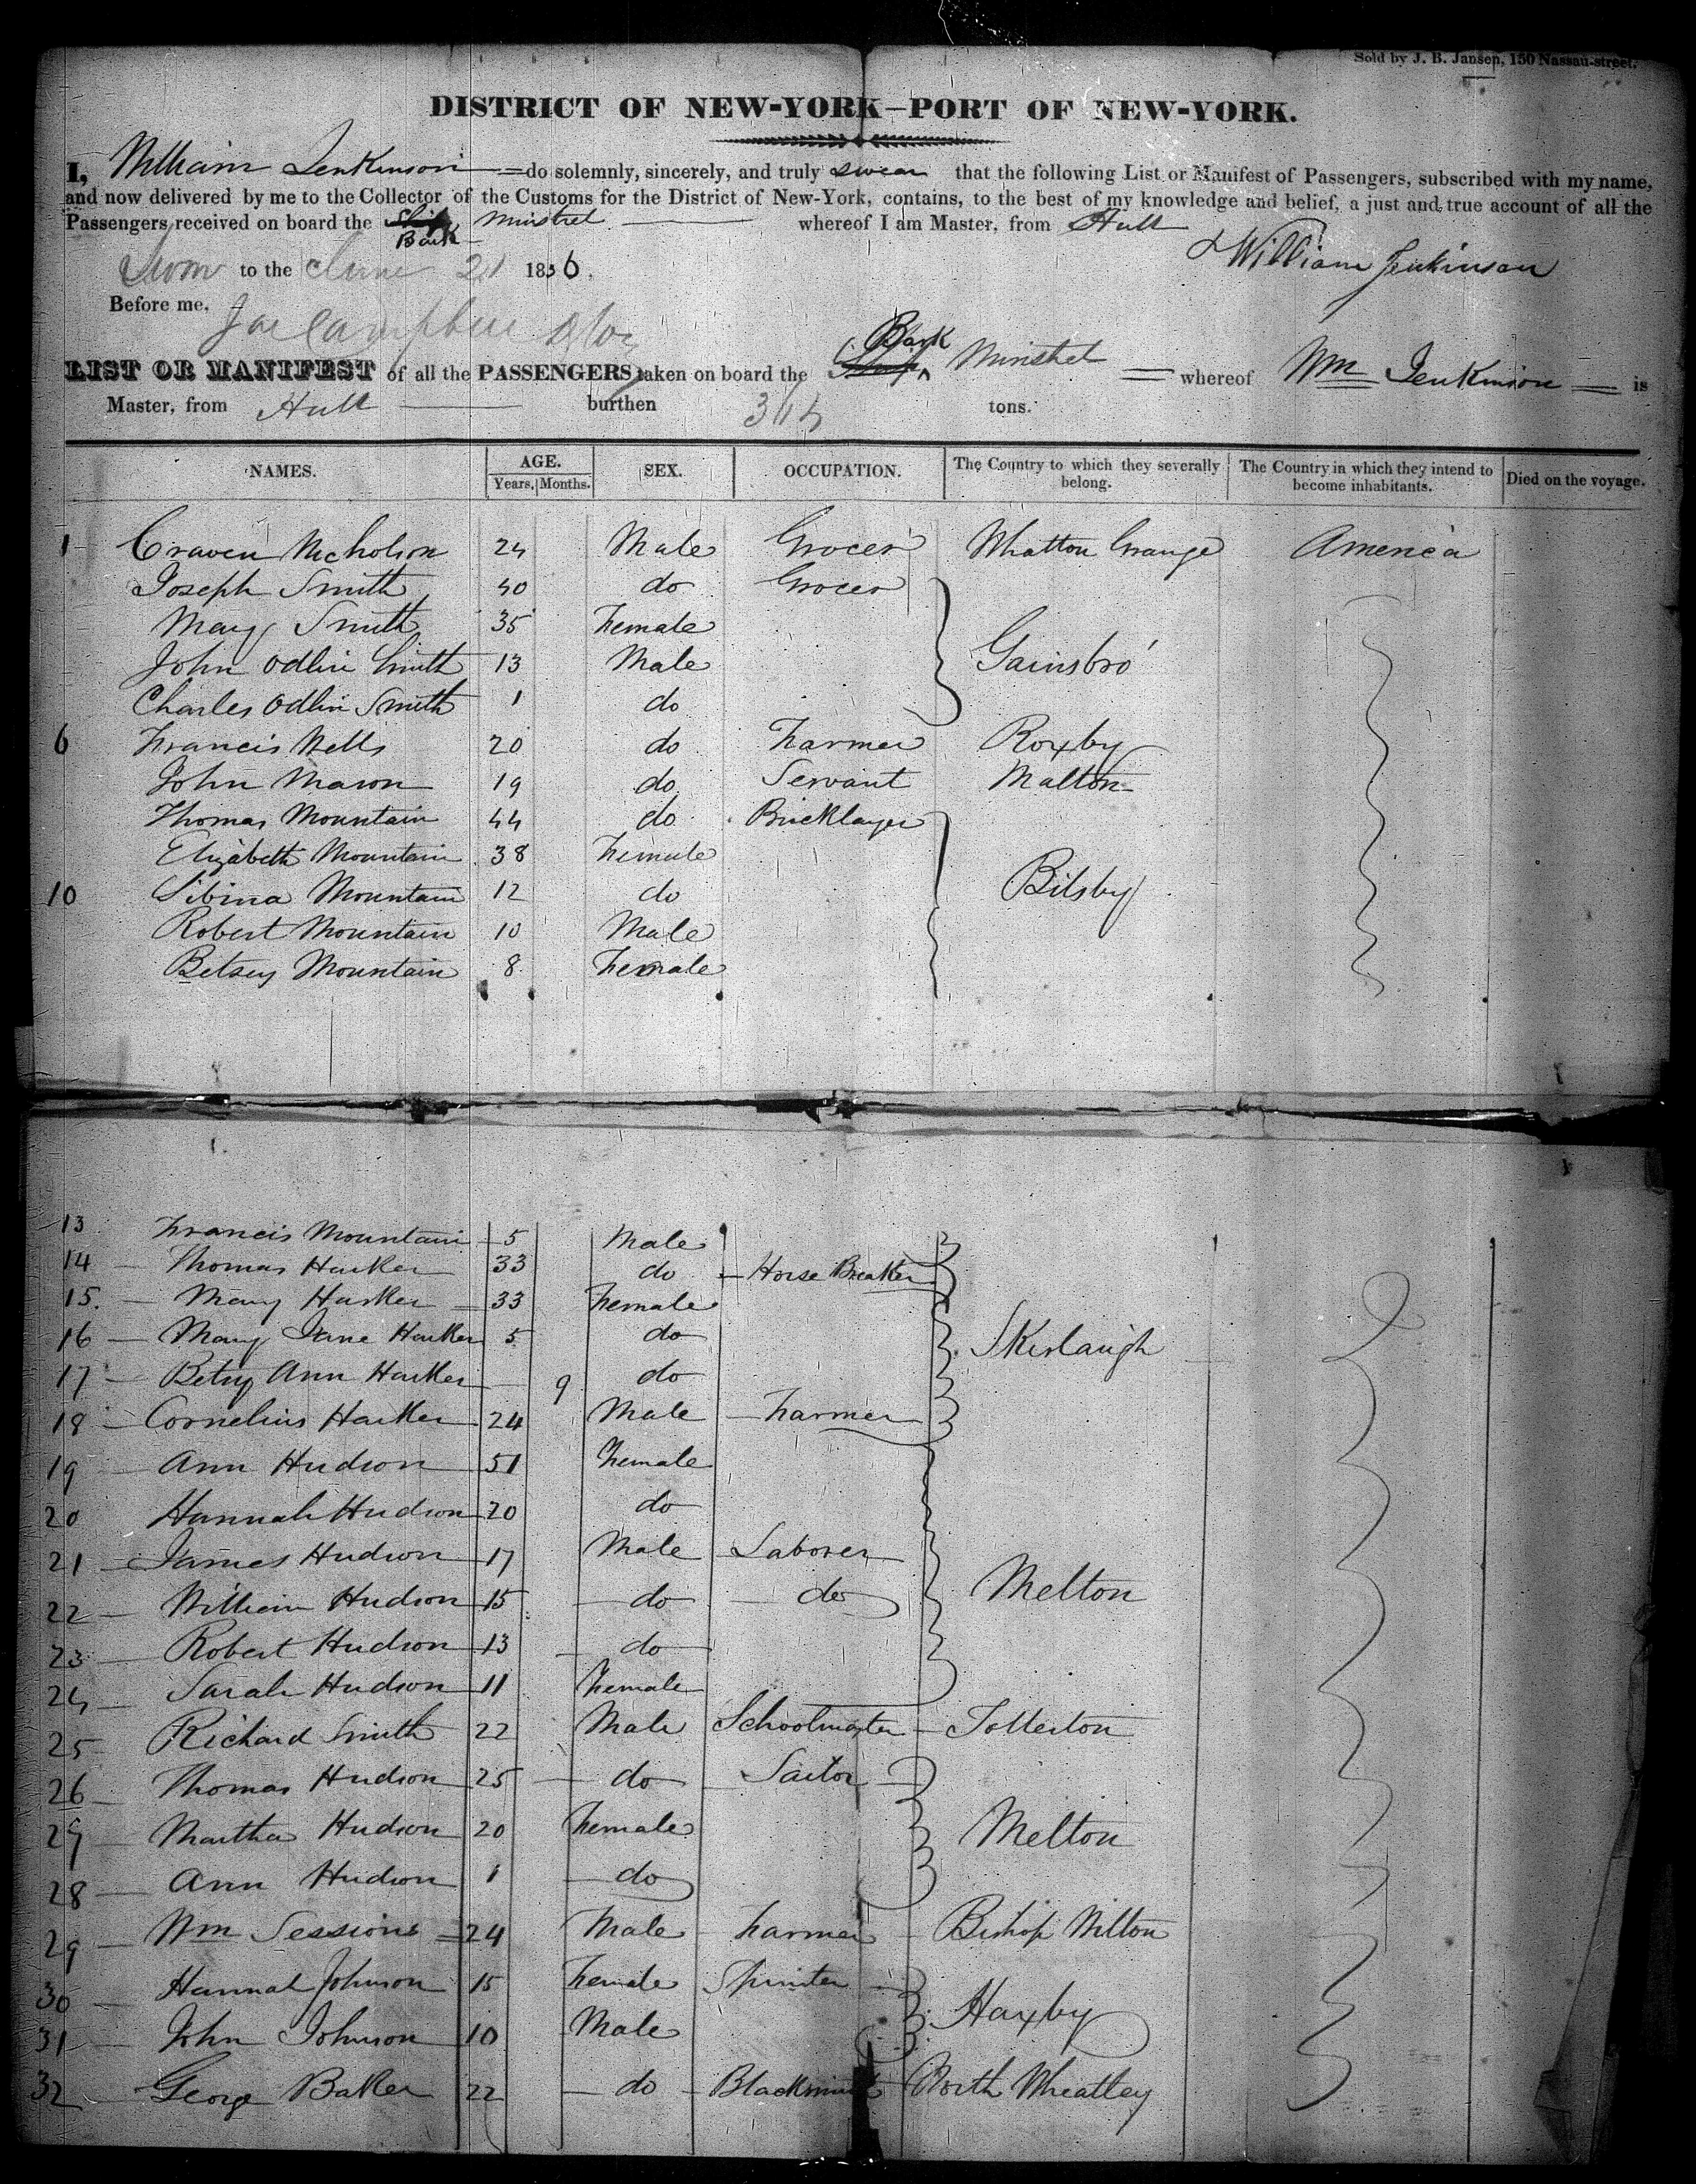 Sold by J. B. Jansen, 150 Nassau-street.
DISTRICT OF NEW-YORK—PORT OF NEW-YORK.
I, William Jenkinson do solemnly, sincerely, and truly swear that the following List or Manifest of Passengers, subscribed with my name,
and now delivered by me to the Collector of the Customs for the District of New-York, contains, to the best of my knowledge and belief, a just and true account of all the
Passengers received on board the Ship Bark Minstrel whereof I am Master, from Hull
Sworn to the June 21 1836. William Jenkinson
Before me.
LIST OR MANIFEST of all the PASSENGERS taken on board the Ship Bark Minstrel whereof Wm Jenkinson is
Master, from Hull burthen tons.
NAMES. AGE. Years, Months. SEX. OCCUPATION. The Country to which they severally belong. The Country in which they intend to become inhabitants. Died on the voyage.
1 Craven Nicholson 24 Male Grocer Whatton Grange America
Joseph Smith 40 do Grocer
Mary Smith 35 Female
John Odlin Smith 13 Male Gainsbro'
Charles Odlin Smith 1 do
6 Francis Wells 20 do Farmer Roxby
John Mason 19 do Servant Malton
Thomas Mountain 44 do Bricklayer
Elizabeth Mountain 38 Female
10 Sibina Mountain 12 do Bilsby
Robert Mountain 10 Male
Betsey Mountain 8 Female
13 Francis Mountain 5 Male
14 Thomas Harker 33 do Horse Breaker
15. Mary Harker 33 Female
16 Mary Jane Harker 5 do Skirlaugh
17 Betsy Ann Harker 9 do
18 Cornelius Harker 24 Male Farmer
19 Ann Hudson 51 Female
20 Hannah Hudson 20 do
21 James Hudson 17 Male Laborer
22 William Hudson 15 do do Melton
23 Robert Hudson 13 do
24 Sarah Hudson 11 Female
25 Richard Smith 22 Male Schoolmaster Tollerton
26 Thomas Hudson 25 do Sailor
27 Martha Hudson 20 Female Melton
28 Ann Hudson 1 do
29 Wm Sessions 24 Male Farmer Bishop Wilton
30 Hannah Johnson 15 Female Spinster Haxby
31 John Johnson 10 Male
32 George Baker 22 do Blacksmith North Wheatley